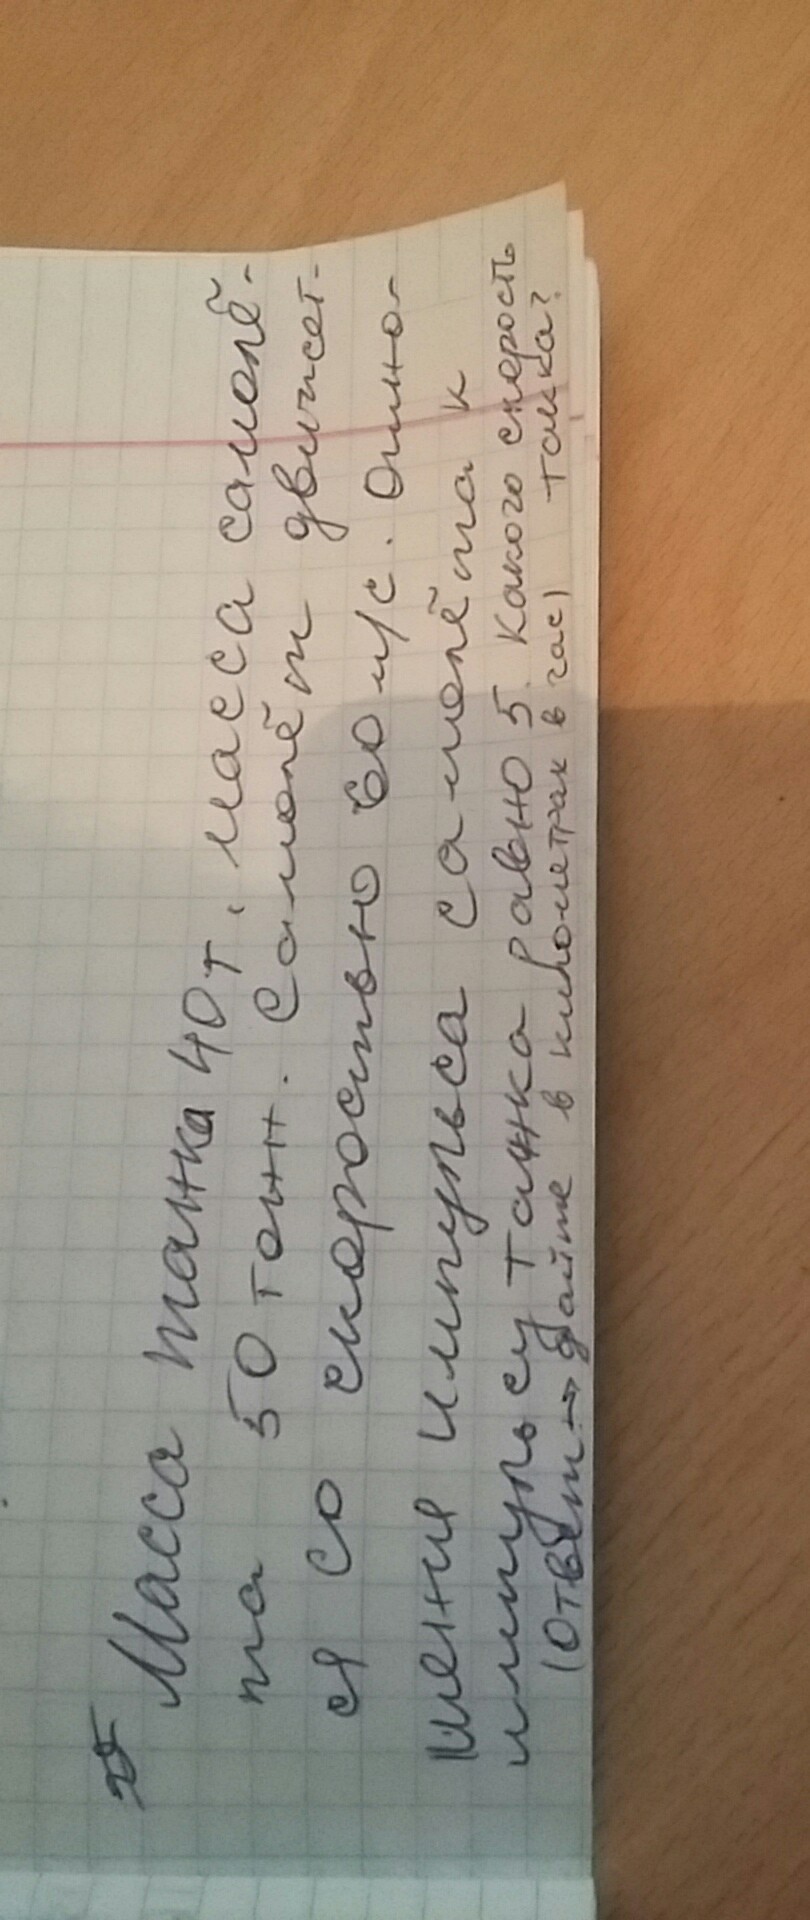 Масса танка 40т, масса самолё-
та 50 тонн. Самолёт движет-
ся со скоростью 60 м/с. Отно-
шения импульса самолёта к
импульсу танка равно 5. Какого скорость
(Ответ → дайте в километрах в час) танка?